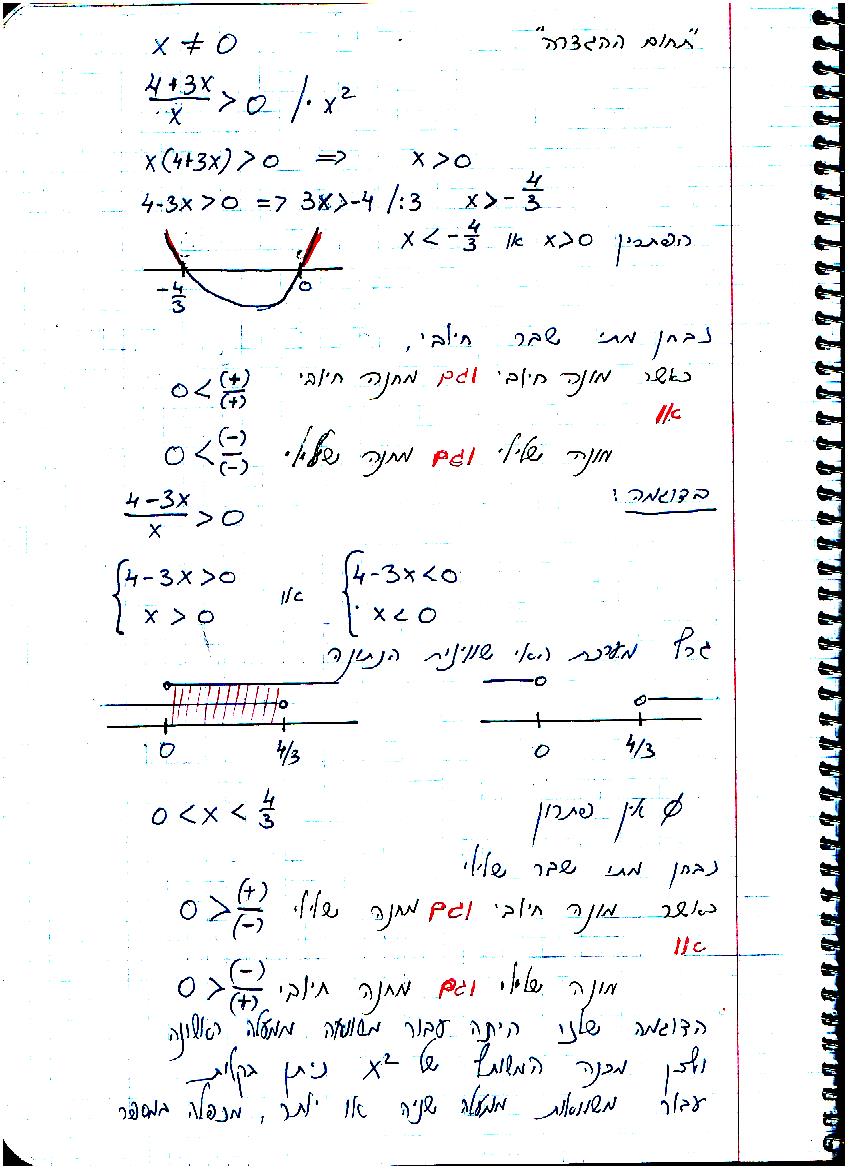 "תחום ההגדרה"
x ≠ 0
(4+3x)/x > 0 /· x²
x(4+3x) > 0 ⇒ x > 0
4-3x > 0 => 3x > -4 /:3 x > -4/3
הפתרון x > 0 או x < -4/3
-4/3 0
נבחן מתי שבר חיובי,
כאשר מונה חיובי וגם מחנה חיובי 0 < (+)/(+)
או
מונה שלילי וגם מחנה שלילי 0 < (-)/(-)
בדוגמה:
(4-3x)/x > 0
{4-3x > 0 או {4-3x < 0
x > 0 x < 0
מערכת האי שוויונית הנתונה
0 4/3 0 4/3
0 < x < 4/3 ϕ אין פתרון
נבחן מתי שבר שלילי
כאשר מונה חיובי וגם מחנה שלילי 0 > (+)/(-)
או
מונה שלילי וגם מחנה חיובי 0 > (-)/(+)
הדוגמה שלנו היתה עבור משוואה ממעלה ראשונה
ולכן מכנה המשותף של x² ניתן בקלות.
עבור משוואות ממעלה שניה או יותר, מכפלה במספר